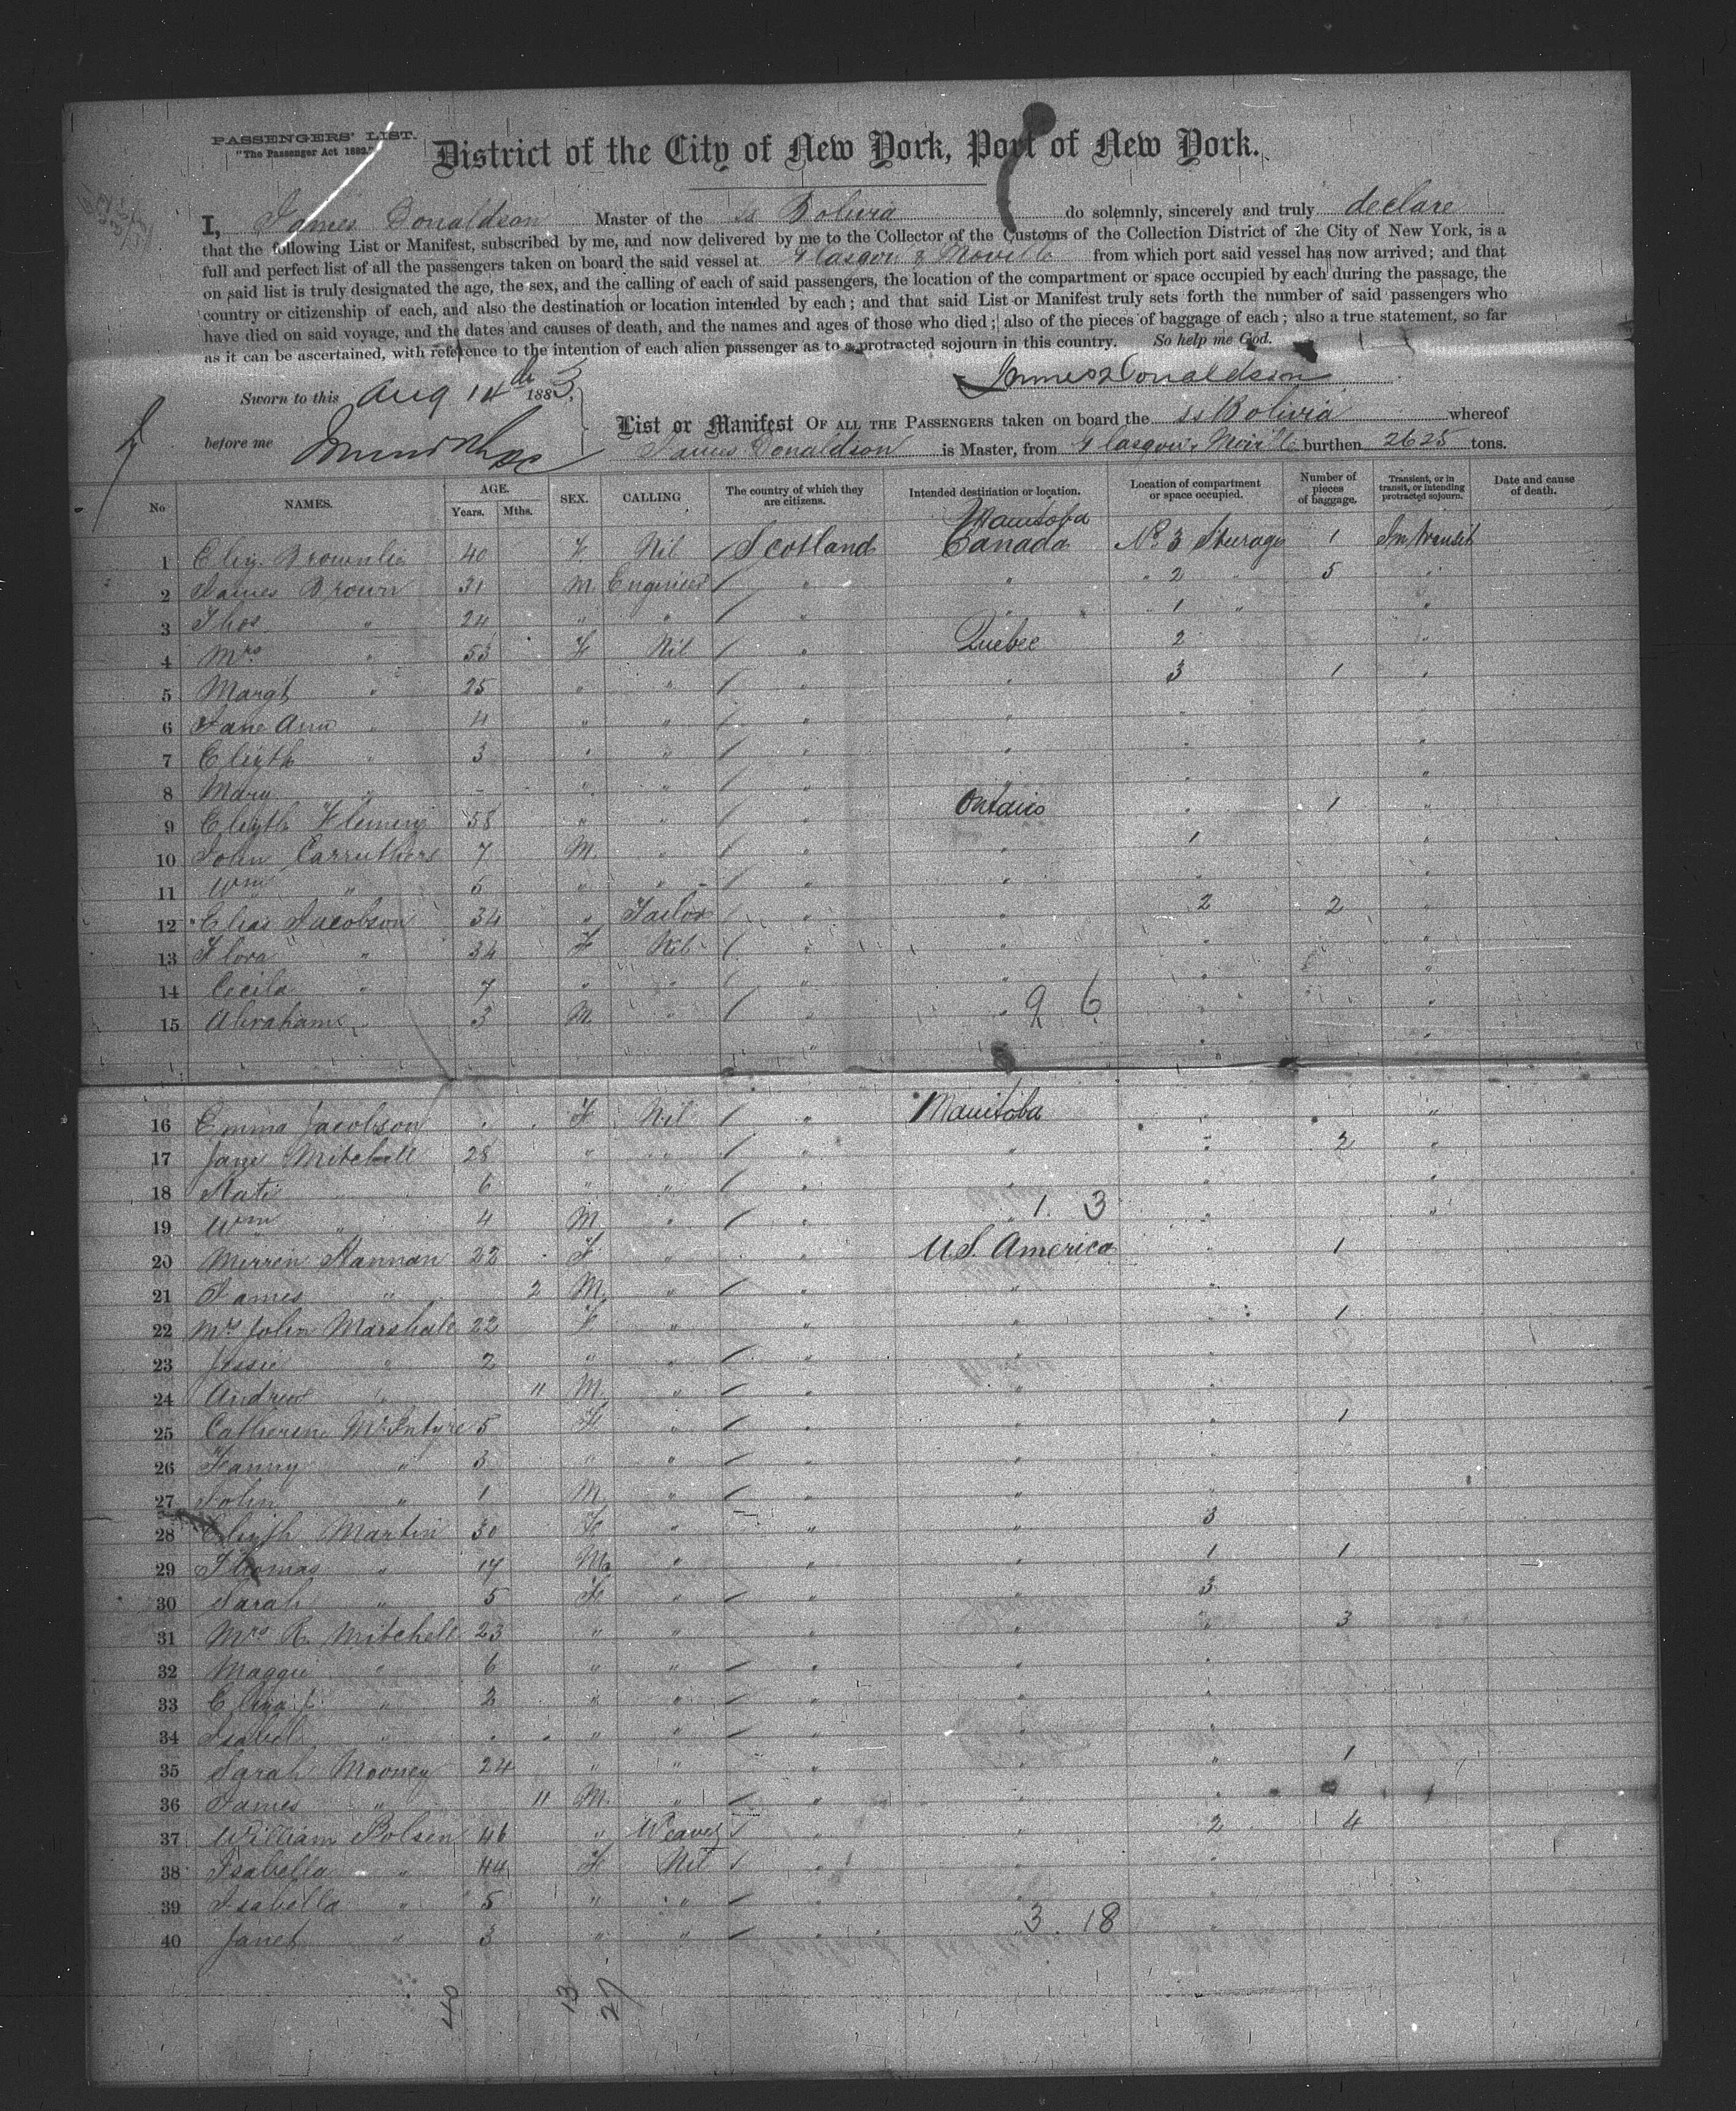 PASSENGERS' LIST.
"The Passenger Act 1882."
District of the City of New York, Port of New York.
I, James Donaldson Master of the ss Bolivia do solemnly, sincerely and truly declare
that the following List or Manifest, subscribed by me, and now delivered by me to the Collector of the Customs of the Collection District of the City of New York, is a
full and perfect list of all the passengers taken on board the said vessel at Glasgow & Moville from which port said vessel has now arrived; and that
on said list is truly designated the age, the sex, and the calling of each of said passengers, the location of the compartment or space occupied by each during the passage, the
country or citizenship of each, and also the destination or location intended by each; and that said List or Manifest truly sets forth the number of said passengers who
have died on said voyage, and the dates and causes of death, and the names and ages of those who died; also of the pieces of baggage of each; also a true statement, so far
as it can be ascertained, with reference to the intention of each alien passenger as to a protracted sojourn in this country. So help me God.
James Donaldson
Sworn to this Aug 14th 1883,
before me
List or Manifest OF ALL THE PASSENGERS taken on board the ss Bolivia whereof
James Donaldson is Master, from Glasgow & burthen 2625 tons.
No NAMES. AGE. Years. Mths. SEX. CALLING The country of which they are citizens. Intended destination or location. Location of compartment or space occupied. Number of pieces of baggage. Transient, or in transit, or intending protracted sojourn. Date and cause of death.
Manitoba
1 Eliz. Brownlie 40 F Nil / Scotland Canada No 3 Steerage 1 In transit
2 James Brown 31 M. Engineer / " " " 2 " 5 "
3 Thos " 24 " " / " " " 1 " "
4 Mrs " 53 F Nil / " Quebec 2 "
5 Margt " 25 " " / " " 3 1 "
6 Jane Ann " 4 " " / " " " "
7 Elizth " 3 " " / " " " "
8 Mary " " " / " " " "
9 Elizth Fleming 58 " " / " Ontario " 1 "
10 John Carruthers 7 M. " / " " 1 "
11 Wm " 5 " " / " " " "
12 Elias Jacobson 34 " Tailor / " " 2 2 "
13 Flora " 34 F Nil / " " " "
14 Cecila " 7 " " / " " " "
15 Abraham " 3 M " / " " " "
9 6
16 Emma Jacobson F Nil / " Manitoba " "
17 Jane Mitchell 28 " " / " " " 2 "
18 " 6 " " / " " " "
19 Wm " 4 M. " / " " " "
1. 3
20 Merren Hannan 22 F " " U.S. America " 1
21 James " 2 M. " / " " "
22 Mrs John Marshall 22 F " " " " 1
23 Jessie " 2 " " / " " "
24 Andrew " 11 M. " / " " "
25 Catherine McIntyre 5 F " / " " " 1
26 Fanny " 3 " " / " " "
27 John " 1 M. " / " " "
28 Elizth Martin 30 F " " " 3
29 Thomas " 17 M " " " 1 1
30 Sarah " 5 F " / " " 3
31 Mrs R. Mitchell 23 " " " " " 3
32 Maggie " 6 " " / " " "
33 Eliza J. " 2 " " / " " "
34 Isabel " " " / " " "
35 Sarah Mooney 24 " " " " " 1
36 James " 11 M. " / " " "
37 William 46 " Weaver / " " 2 4
38 Isabella " 44 F Nil / " " "
39 Isabella " 5 " " / " " "
40 Janet " 3 " " / " " "
3. 18
40 13 27